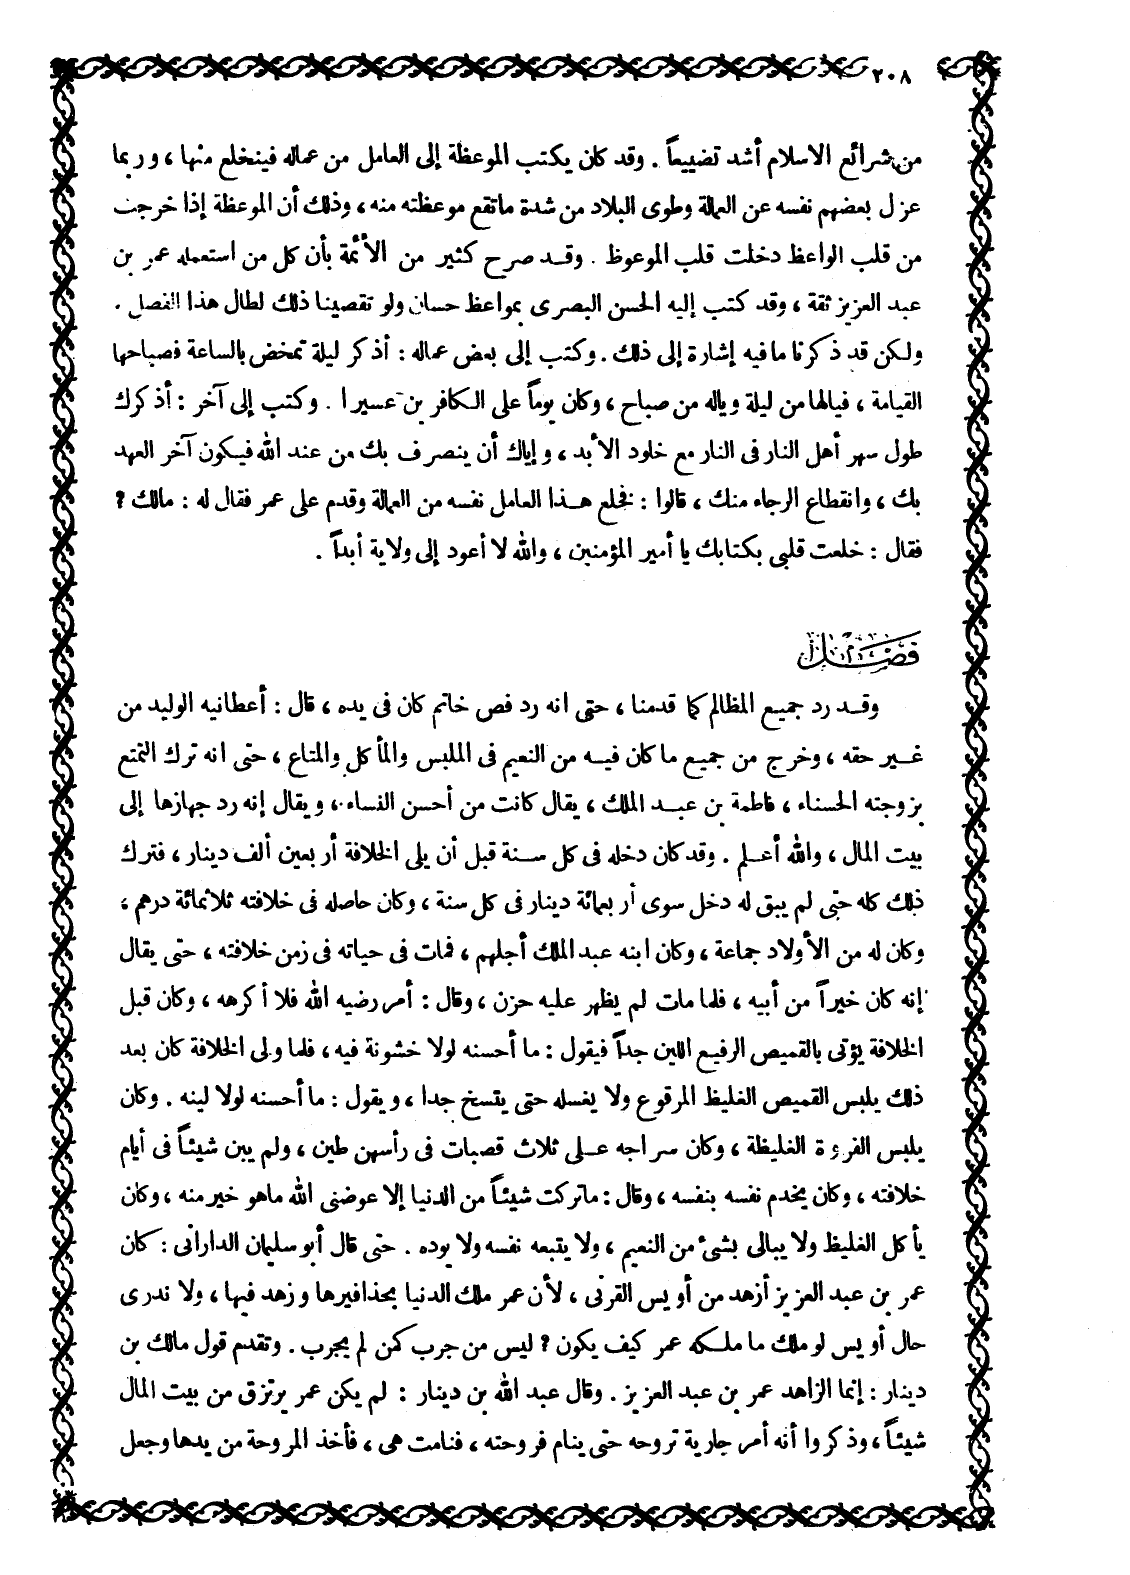 ٢٠٨
من شرائع الاسلام أشد تضييعاً . وقد كان يكتب الموعظة إلى العامل من عماله فينخلع منها ، وربما
عزل بعضهم نفسه عن العمالة وطوى البلاد من شدة ما تقع موعظته منه ، وذلك أن الموعظة إذا خرجت
من قلب الواعظ دخلت قلب الموعوظ . وقد صرح كثير من الأئمة بأن كل من استعمله عمر بن
عبد العزيز ثقة ، وقد كتب إليه الحسن البصرى بمواعظ حسان ولو تقصينا ذلك لطال هذا الفصل .
ولكن قد ذكرنا ما فيه إشارة إلى ذلك . وكتب إلى بعض عماله : أذكر ليلة تمخض بالساعة فصباحها
القيامة ، فيالها من ليلة وياله من صباح ، وكان يوماً على الكافرين عسيرا . وكتب إلى آخر : أذكرك
طول سهر أهل النار فى النار مع خلود الأبد ، وإياك أن ينصرف بك من عند الله فيكون آخر العهد
بك ، وانقطاع الرجاء منك ، قالوا : فخلع هذا العامل نفسه من العمالة وقدم على عمر فقال له : مالك ؟
فقال : خلعت قلبى بكتابك يا أمير المؤمنين ، والله لا أعود إلى ولاية أبداً .
فصل
وقد رد جميع المظالم كما قدمنا ، حتى انه رد فص خاتم كان فى يده ، قال : أعطانيه الوليد من
غير حقه ، وخرج من جميع ما كان فيه من النعيم فى الملبس والمأكل والمتاع ، حتى انه ترك التمتع
بزوجته الحسناء ، فاطمة بن عبد الملك ، يقال كانت من أحسن النساء ، ويقال إنه رد جهازها إلى
بيت المال ، والله أعلم . وقد كان دخله فى كل سنة قبل أن يلى الخلافة أربعين ألف دينار ، فترك
ذلك كله حتى لم يبق له دخل سوى أربعمائة دينار فى كل سنة ، وكان حاصله فى خلافته ثلاثمائة درهم ،
وكان له من الأولاد جماعة ، وكان ابنه عبد الملك أجلهم ، فمات فى حياته فى زمن خلافته ، حتى يقال
إنه كان خيراً من أبيه ، فلما مات لم يظهر عليه حزن ، وقال : أمر رضيه الله فلا أكرهه ، وكان قبل
الخلافة يؤتى بالقميص الرفيع اللين جداً فيقول : ما أحسنه لولا خشونة فيه ، فلما ولى الخلافة كان بعد
ذلك يلبس القميص الغليظ المرقوع ولا يغسله حتى يتسخ جدا ، ويقول : ما أحسنه لولا لينه . وكان
يلبس الفروة الغليظة ، وكان سراجه على ثلاث قصبات فى رأسهن طين ، ولم يبن شيئاً فى أيام
خلافته ، وكان يخدم نفسه بنفسه ، وقال : ماتركت شيئاً من الدنيا إلا عوضنى الله ماهو خير منه ، وكان
يأكل الغليظ ولا يبالى بشئ من النعيم ، ولا يتبعه نفسه ولا يوده . حتى قال أبو سليمان الدارانى : كان
عمر بن عبد العزيز أزهد من أويس القرنى ، لأن عمر ملك الدنيا بحذافيرها وزهد فيها ، ولا ندرى
حال أويس لو ملك ما ملكه عمر كيف يكون ؟ ليس من جرب كمن لم يجرب . وتقدم قول مالك بن
دينار : إنما الزاهد عمر بن عبد العزيز . وقال عبد الله بن دينار : لم يكن عمر يرتزق من بيت المال
شيئاً ، وذكروا أنه أمر جارية تروحه حتى ينام فروحته ، فنامت هى ، فأخذ المروحة من يدها وجعل